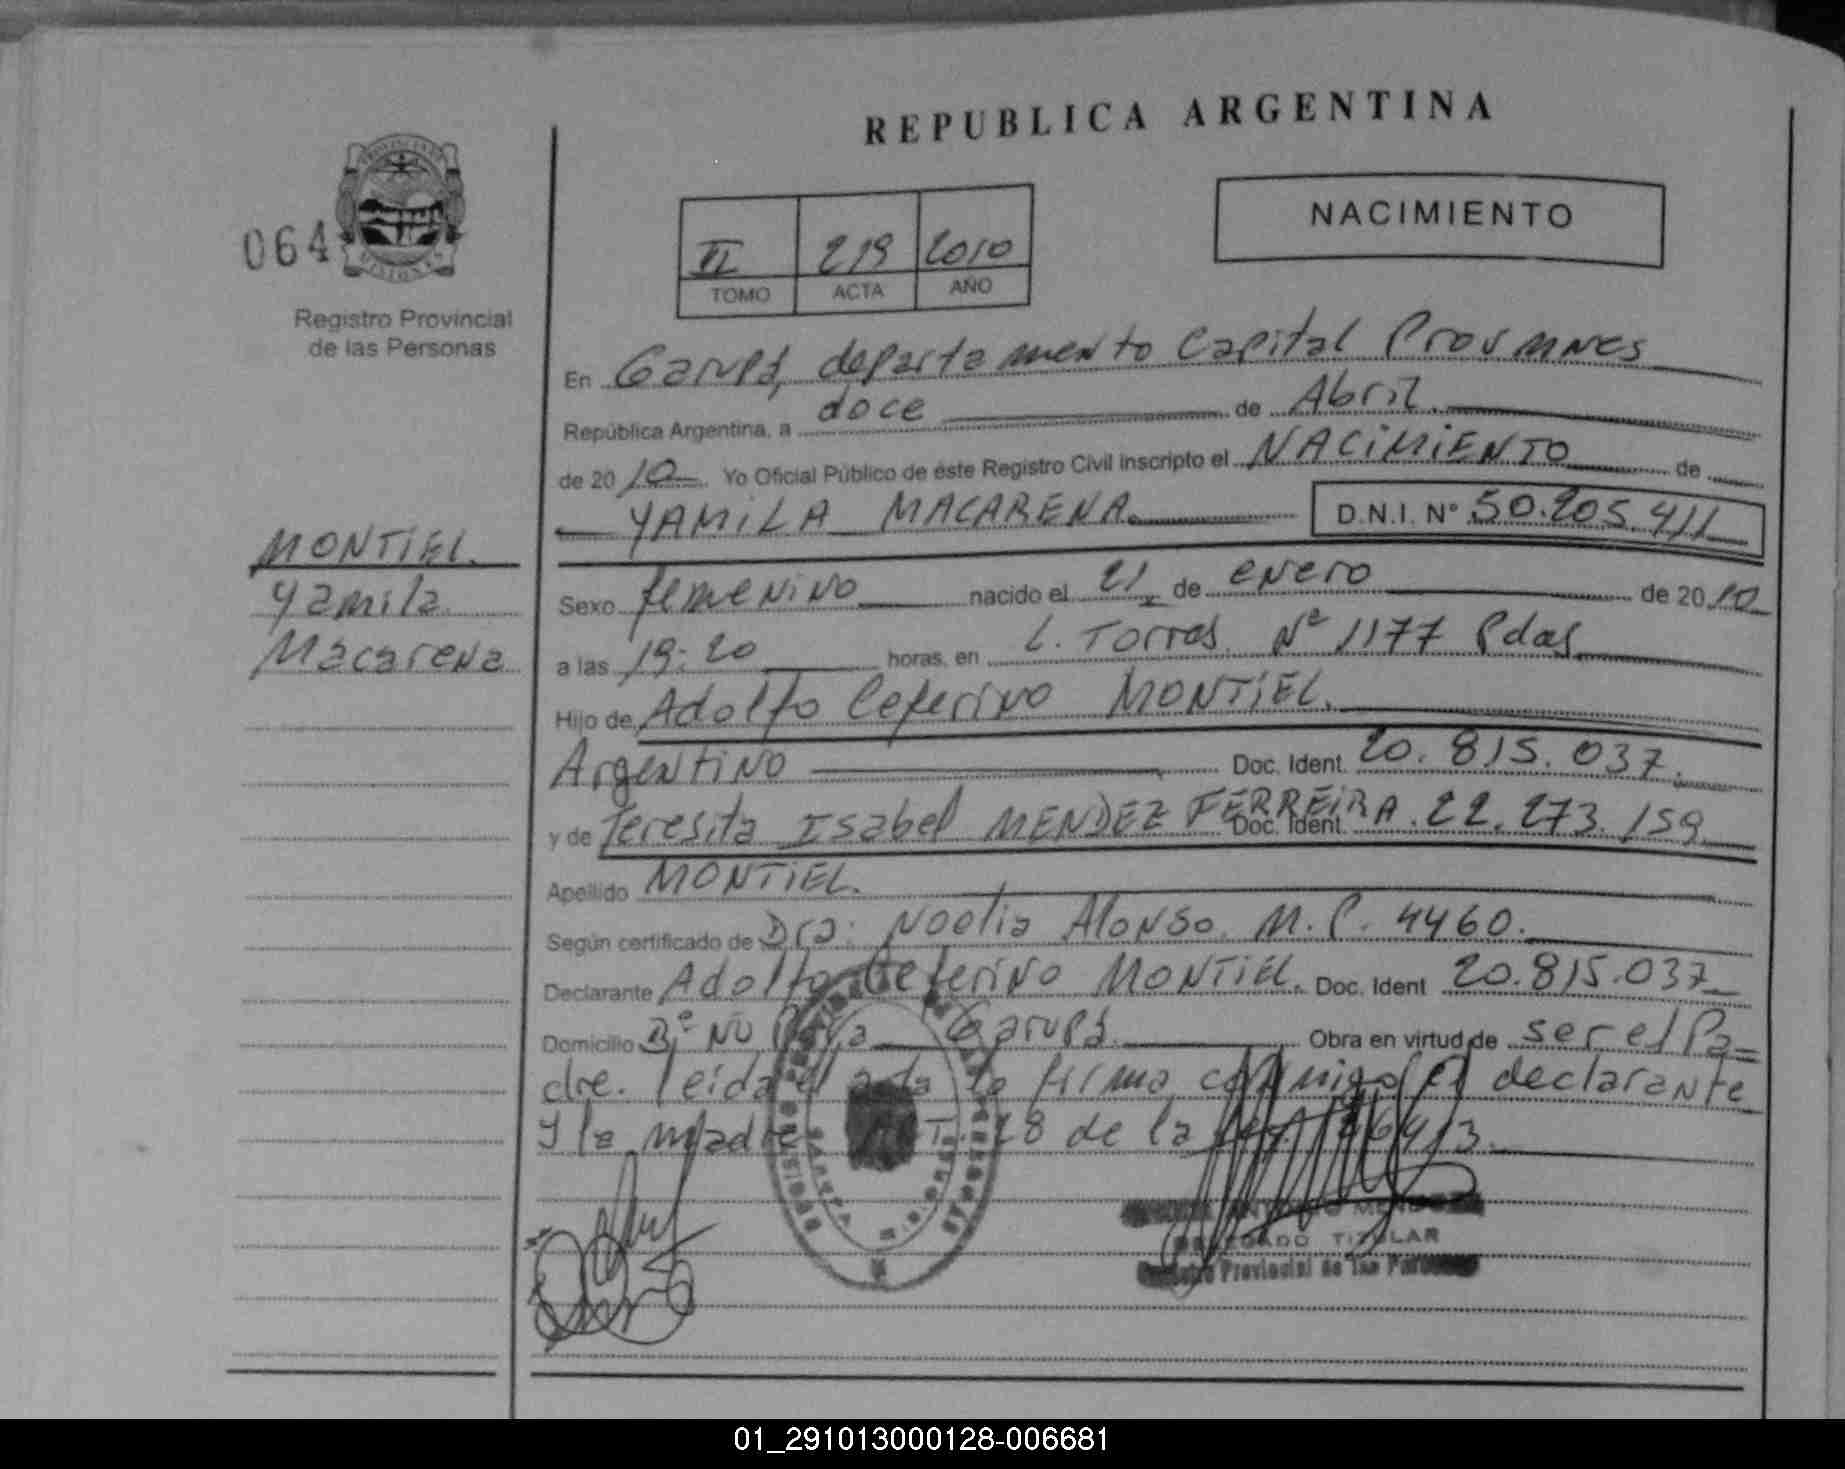 REPUBLICA ARGENTINA
NACIMIENTO
064
PROVINCIA DE
MISIONES
Registro Provincial
de las Personas
II 219 2010
TOMO ACTA AÑO
En Garupá, departamento Capital Prov MNES
República Argentina, a doce de Abril.
de 2010 Yo Oficial Público de éste Registro Civil inscripto el NACIMIENTO de
YAMILA MACARENA. D.N.I. N° 50.205.411
MONTIEL.
Yamila
Macarena
Sexo femenino nacido el 21 de enero de 2010
a las 19:20 horas, en L. Torres Nº 1177 Pdas
Hijo de Adolfo Ceferino MONTIEL.
Argentino Doc. Ident. 20.815.037.
y de Teresita Isabel MENDEZ FERREIRA Doc. Ident. 22.273.159
Apellido MONTIEL.
Según certificado de Dra: Noelia Alonso M.P. 4460.
Declarante Adolfo Ceferino MONTIEL. Doc. Ident 20.815.037
Domicilio Bº Garupá Obra en virtud de ser el Pa-
dre. leida el acta la firma conmigo el declarante
y la madre 28 de la 26413.
ANTONIO
DELEGADO TITULAR
Registro Provincial de las Personas
01_291013000128-006681